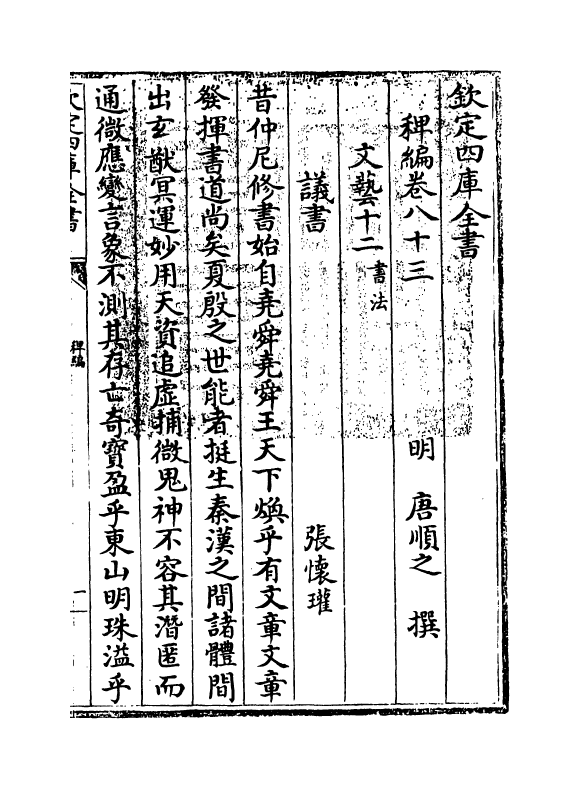 欽定四庫全書
稗編卷八十三　明　唐順之　撰
文藝十二書法
議書　張懷瓘
昔仲尼修書始自堯舜堯舜王天下煥乎有文章文章
發揮書道尚矣夏殷之世能者挺生秦漢之間諸體間
出玄猷冥運妙用天資追虛捕微鬼神不容其潛匿而
通微應變言象不測其存亡奇寶盈乎東山明珠溢乎
欽定四庫全書
稗編
一